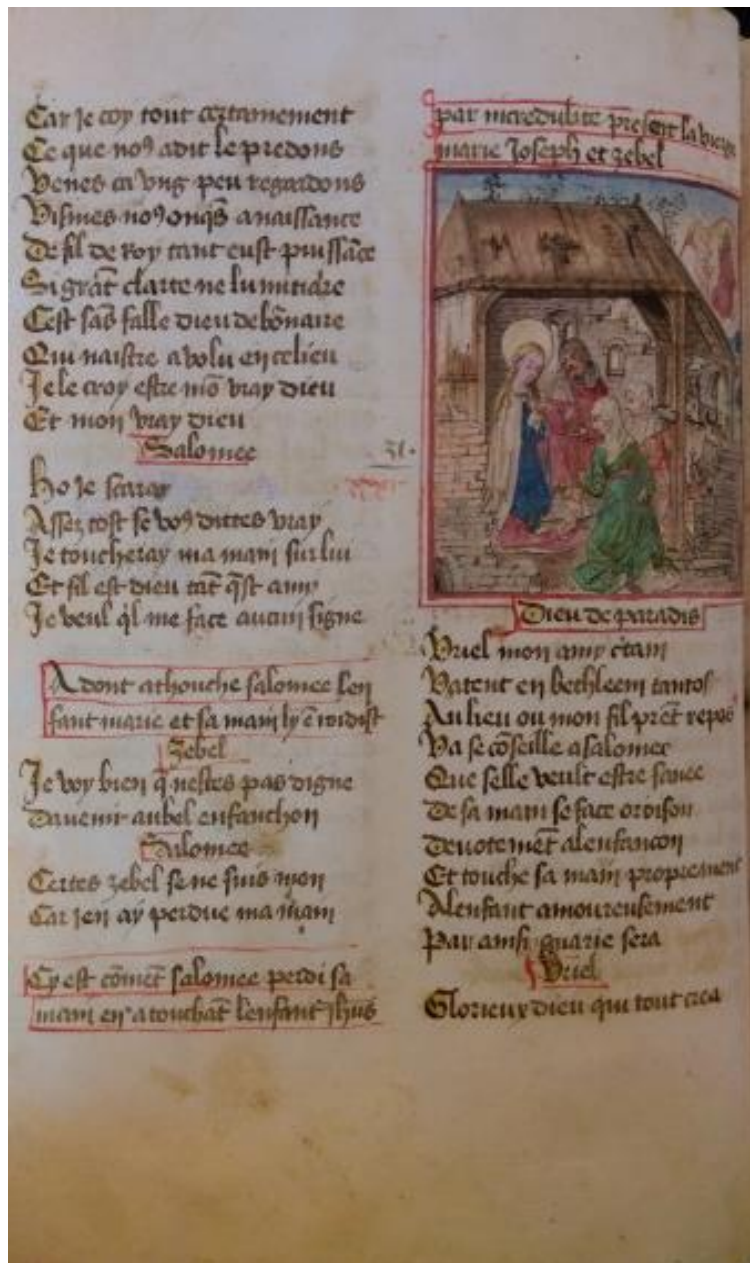 Car je croy tout certainement
Ce que noꝰ a dit le predons
Venes ca vng peu regardons
Vismes noꝰ onqs a naissance
De fil de roy tant eust puissāce
Si grāt clarte ne lumiere
Cest sās falle dieu debōnaire
Qui naistre a volu en ce lieu
Je le croy estre mō vray dieu
Et mon vray dieu
Salomee
Ho je scaray
Assez tost se voꝰ dittes vray
Je toucheray ma main sur lui
Et sil est dieu tāt qst amy
Je veul ql me face aucun signe
Adont athouche salomee len
fant marie et sa main ly ē roidist
Zebel
Je voy bien q̄ nestes pas digne
Davenir au bel enfanchon
Salomee
Certes zebel se ne suis mon
Car jen ay perdue ma main
Cy est cōmēt salomee perdi sa
main en atouchāt lenfant jhus
par incredulite presēt la vierge
marie Joseph et zebel
31.
Dieu de paradis
Vriel mon amy
Va tent en bethleem tantos
Au lieu ou mon fil prēt repos
Va se cōseille a salomee
Que selle veult estre sanee
De sa main se face orison
Deuotemēt a lenfancon
Et touche sa main proprement
A lenfant amoureusement
Par ainsi guarie sera
Vriel
Glorieux dieu qui tout crea